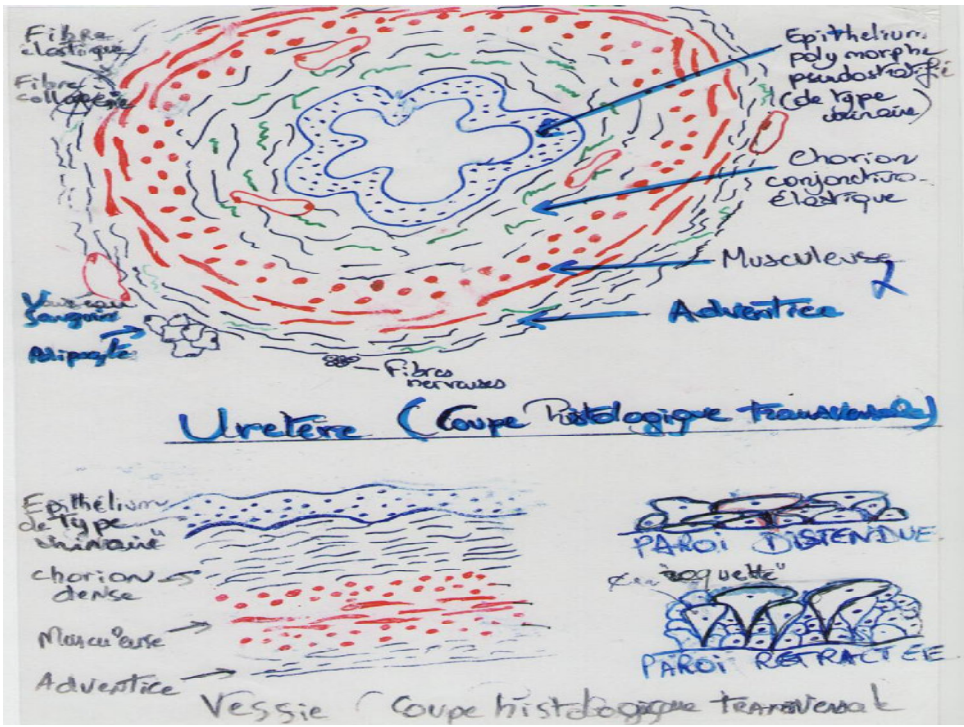 Fibre
élastique
Fibre
collagène
Epithelium
polymorphe
pseudostratifié
(de type
urinaire)
Chorion
conjonctivo-
élastique
Musculeuse
Adventice
Vaisseau
Sanguin
Adipocyte
Fibres
nerveuses
Uretère (Coupe histologique transversale)
Epithélium
de "type
urinaire"
chorion
dense
Musculeuse
Adventice
PAROI DISTENDUE
"raquette"
PAROI RETRACTÉE
Vessie (Coupe histologique transversale